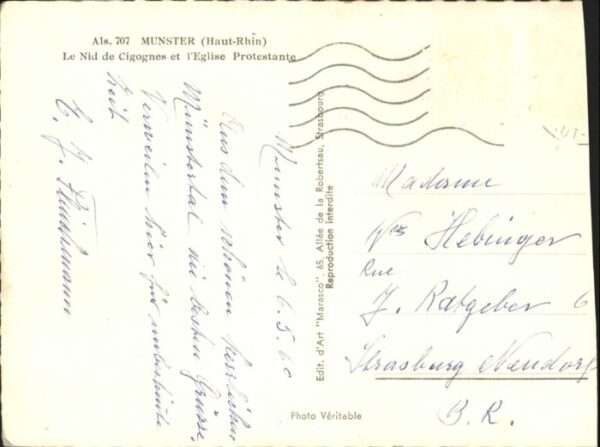 Als. 707 MUNSTER (Haut-Rhin)
Le Nid de Cigognes et l'Eglise Protestante
Munster le 6.5.60
Aus dem schönen herrlichen
Münstertal die besten Grüsse,
Verweilen hier für unbestimmte
Zeit.
Edit. d'Art "Marasco", 65, Allée de la Robertsau, Strasbourg
Reproduction interdite
Madame
Vve Hebinger
Rue
J. Ratgeber 6
Strasburg Neudorf
B. R.
Photo Véritable